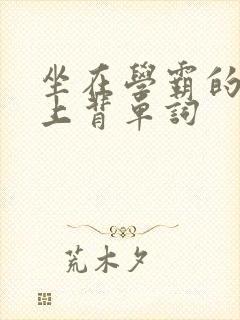 坐在學霸的
上背单詞
荒木夕